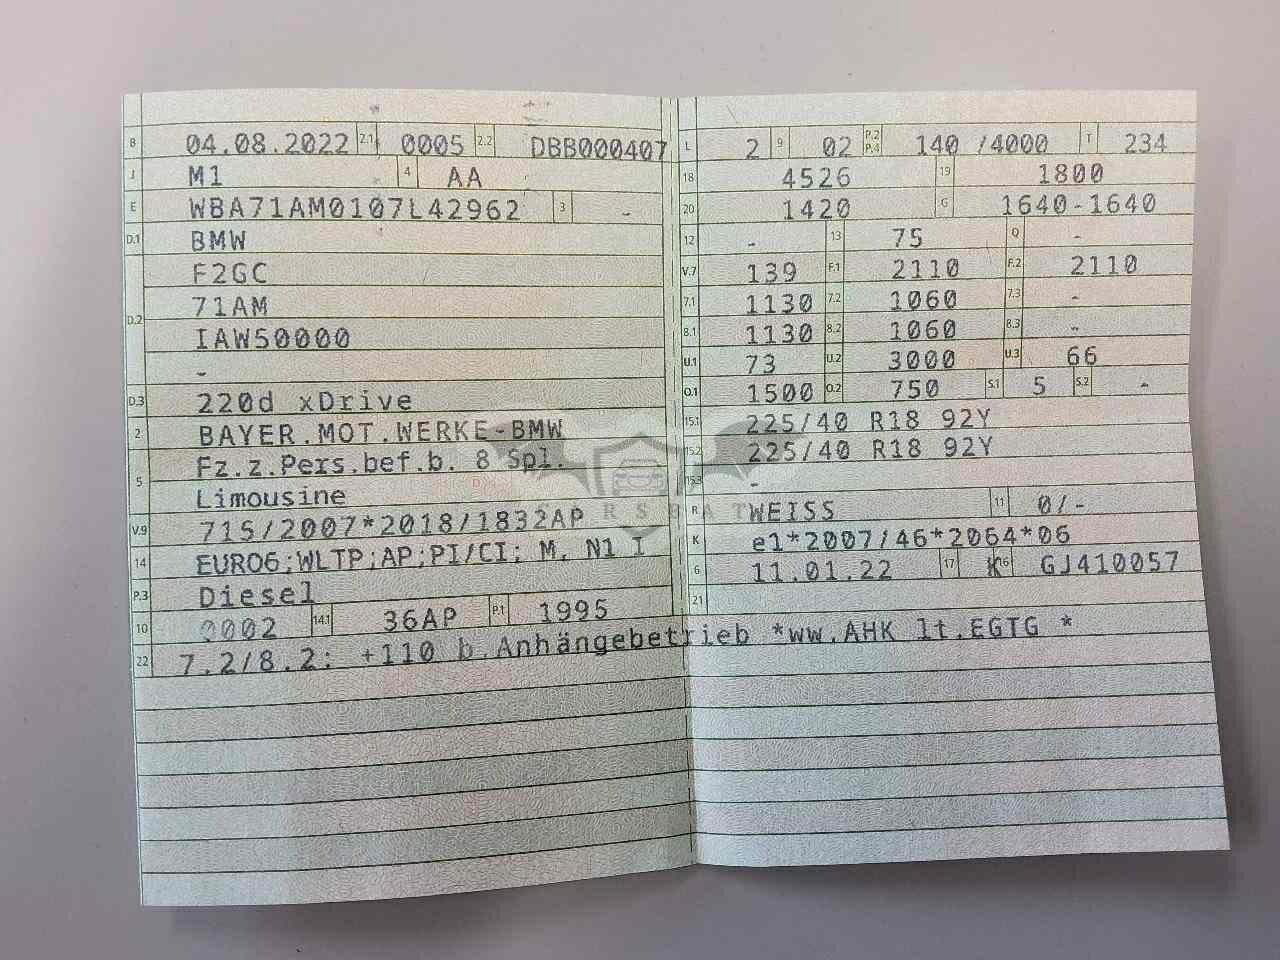 B 04.08.2022 2.1 0005 2.2 DBB000407
J M1 4 AA
E WBA71AM0107L42962 3 -
D.1 BMW
D.2 F2GC
71AM
IAW50000
-
D.3 220d xDrive
2 BAYER.MOT.WERKE-BMW
5 Fz.z.Pers.bef.b. 8 Spl.
Limousine
V.9 715/2007*2018/1832AP
14 EURO6;WLTP;AP;PI/CI; M, N1 I
P.3 Diesel
10 0002 14.1 36AP P.1 1995
22 7.2/8.2: +110 b.Anhängebetrieb *ww.AHK lt.EGTG *
L 2 9 02 P.2 P.4 140 /4000 T 234
18 4526 19 1800
20 1420 G 1640-1640
12 - 13 75 Q -
V.7 139 F.1 2110 F.2 2110
7.1 1130 7.2 1060 7.3 -
8.1 1130 8.2 1060 8.3 -
U.1 73 U.2 3000 U.3 66
O.1 1500 O.2 750 S.1 5 S.2 -
15.1 225/40 R18 92Y
15.2 225/40 R18 92Y
15.3 -
R WEISS 11 0/-
K e1*2007/46*2064*06
6 11.01.22 17 K 16 GJ410057
21